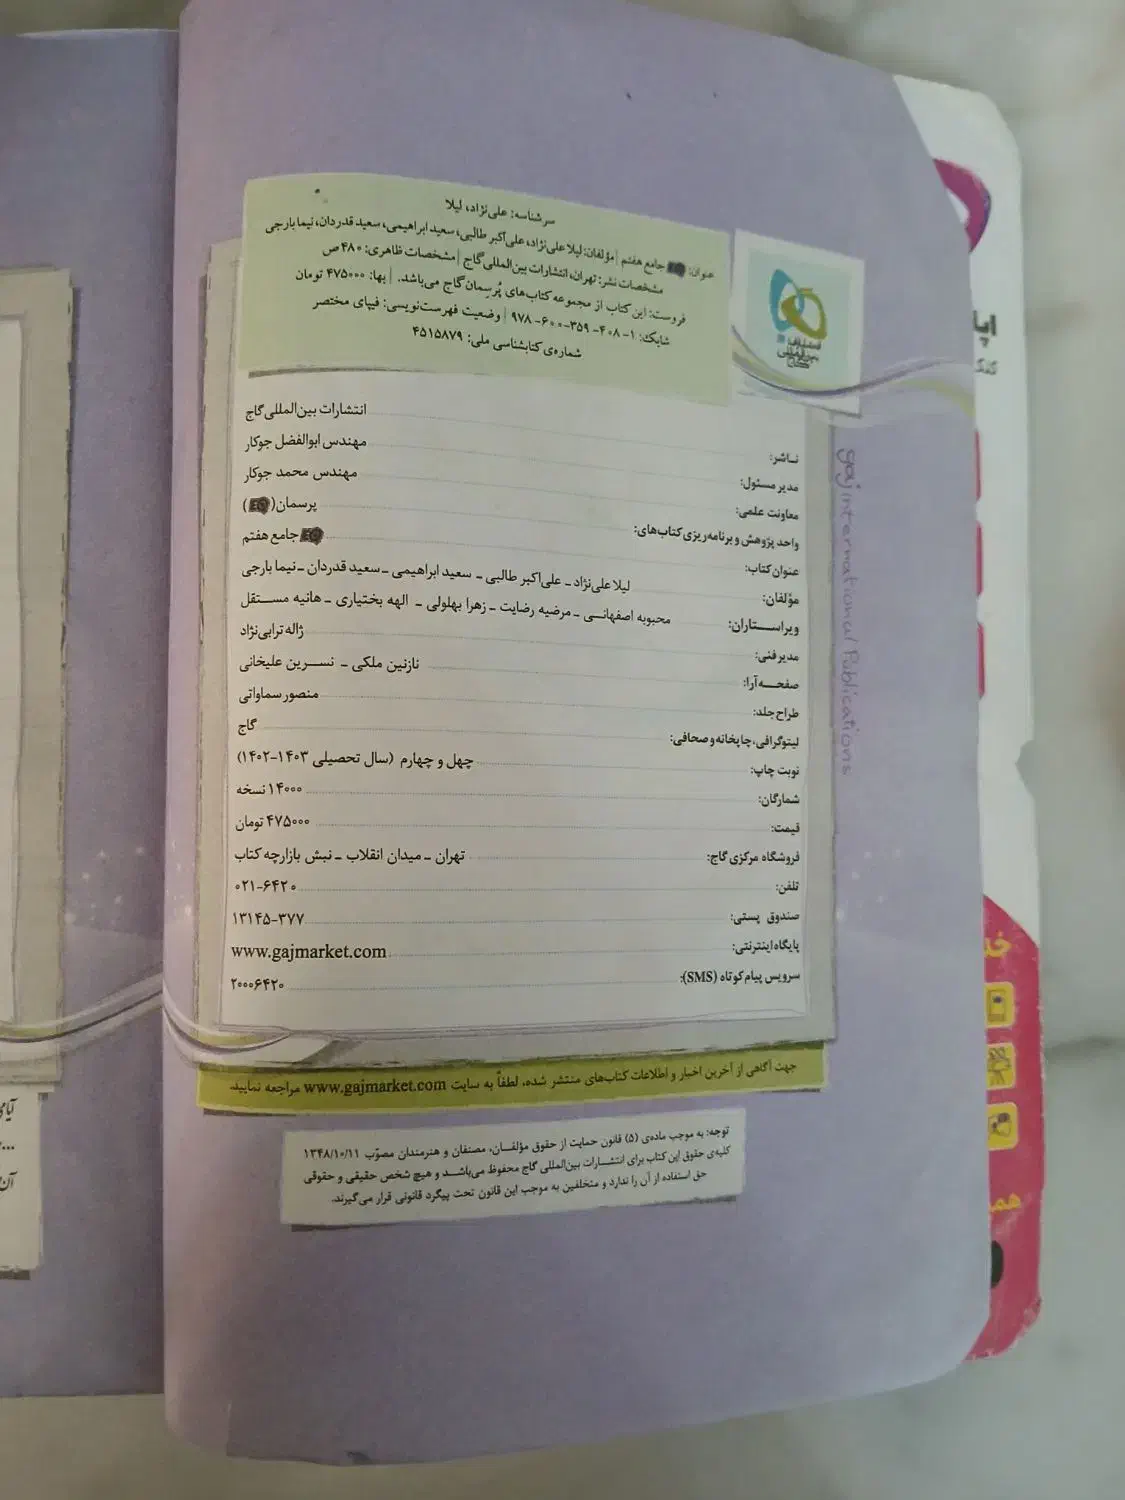 سرشناسه: علی‌نژاد، لیلا
عنوان: EQ جامع هفتم | مؤلفان: لیلا علی‌نژاد، علی‌اکبر طالبی، سعید ابراهیمی، سعید قدردان، نیما یارجی
مشخصات نشر: تهران، انتشارات بین‌المللی گاج | مشخصات ظاهری: ۴۸۰ ص
فروست: این کتاب از مجموعه کتاب‌های پُرسِمان گاج می‌باشد. | بها: ۴۷۵۰۰۰ تومان
شابک: ۱-۴۰۸-۳۵۹-۶۰۰-۹۷۸ | وضعیت فهرست‌نویسی: فیپای مختصر
شماره‌ی کتابشناسی ملی: ۴۵۱۵۸۷۹
ناشر: انتشارات بین‌المللی گاج
مدیر مسئول: مهندس ابوالفضل جوکار
معاونت علمی: مهندس محمد جوکار
واحد پژوهش و برنامه‌ریزی کتاب‌های: پرسمان (EQ)
عنوان کتاب: EQ جامع هفتم
مؤلفان: لیلا علی‌نژاد ـ علی‌اکبر طالبی ـ سعید ابراهیمی ـ سعید قدردان ـ نیما یارجی
ویراستاران: محبوبه اصفهانی ـ مرضیه رضایت ـ زهرا بهلولی ـ الهه بختیاری ـ هانیه مستقل
مدیر فنی: ژاله ترابی‌نژاد
صفحه‌آرا: نازنین ملکی ـ نسرین علیخانی
طراح جلد: منصور سماواتی
لیتوگرافی، چاپخانه و صحافی: گاج
نوبت چاپ: چهل و چهارم (سال تحصیلی ۱۴۰۳-۱۴۰۲)
شمارگان: ۱۴۰۰۰ نسخه
قیمت: ۴۷۵۰۰۰ تومان
فروشگاه مرکزی گاج: تهران ـ میدان انقلاب ـ نبش بازارچه کتاب
تلفن: ۰۲۱-۶۴۲۰
صندوق پستی: ۱۳۱۴۵-۳۷۷
پایگاه اینترنتی: www.gajmarket.com
سرویس پیام کوتاه (SMS): ۲۰۰۰۶۴۲۰
gaj international Publications
جهت آگاهی از آخرین اخبار و اطلاعات کتاب‌های منتشر شده، لطفاً به سایت www.gajmarket.com مراجعه نمایید.
توجه: به موجب ماده‌ی (۵) قانون حمایت از حقوق مؤلفان، مصنفان و هنرمندان مصوّب ۱۳۴۸/۱۰/۱۱
کلیه‌ی حقوق این کتاب برای انتشارات بین‌المللی گاج محفوظ می‌باشد و هیچ شخص حقیقی و حقوقی
حق استفاده از آن را ندارد و متخلفین به موجب این قانون تحت پیگرد قانونی قرار می‌گیرند.